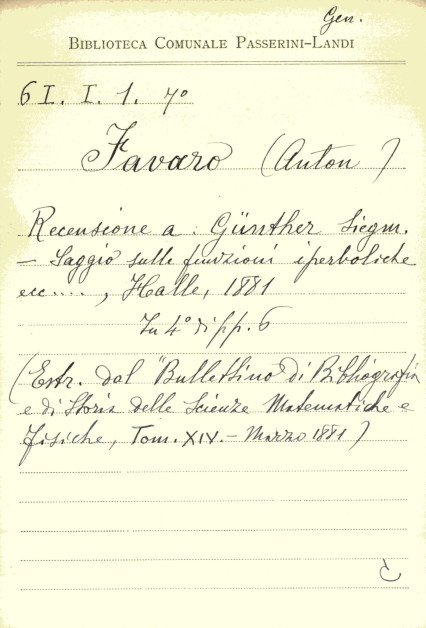 Gen.
BIBLIOTECA COMUNALE PASSERINI-LANDI
6 I. I. 1. 7º
Favaro (Anton)
Recensione a: Günther Siegm.
- Saggio sulle funzioni iperboliche
ecc...., Halle, 1881
In 4º di pp. 6
(Estr. dal "Bullettino di Bibliografia
e di Storia delle Scienze Matematiche e
fisiche, Tom. XIV. - Marzo 1881)